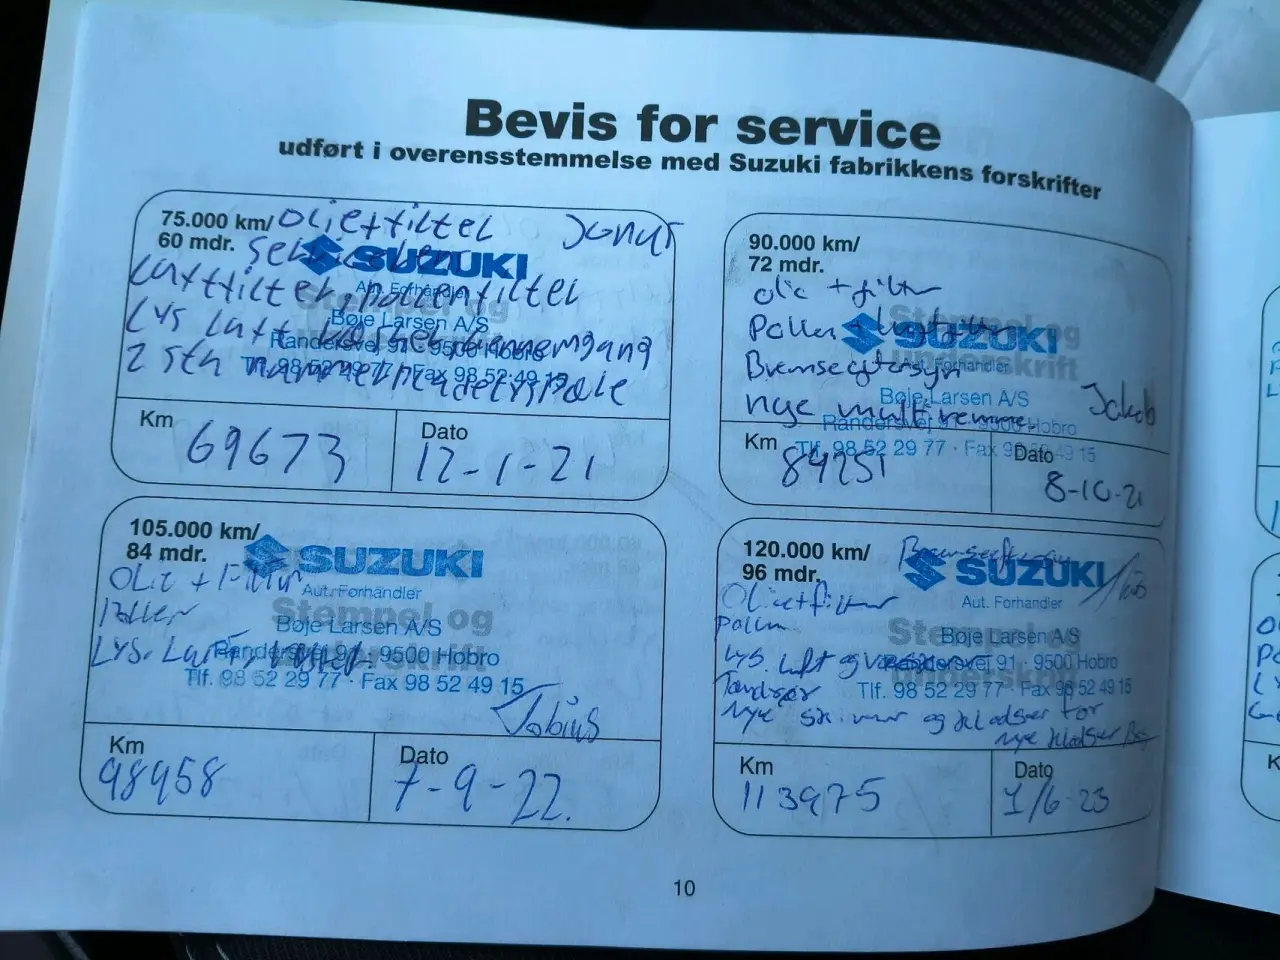 Bevis for service
udført i overensstemmelse med Suzuki fabrikkens forskrifter
75.000 km/
60 mdr.
olie+filter
SUZUKI
Aut. Forhandler
Luftfilter, pollenfilter
Stempel og
Bøje Larsen A/S
Lys luft gennemgang
Randersvej 91 · 9500 Hobro
Tlf. 98 52 29 77 · Fax 98 52 49 15
2 stk nummerpladelyspære
Km
69673
Dato
12-1-21
90.000 km/
72 mdr.
olie + filter
Stempel og
underskrift
Pollen +
SUZUKI
Aut. Forhandler
Bremseeftersyn
Bøje Larsen A/S
Jakob
nye multiremme
Randersvej 91 · 9500 Hobro
Tlf. 98 52 29 77 · Fax 98 52 49 15
Km
84251
Dato
8-10-21
105.000 km/
84 mdr.
SUZUKI
Olie + Filter
Aut. Forhandler
Pollen
Stempel og
underskrift
Bøje Larsen A/S
Lys. Luft,
Randersvej 91 · 9500 Hobro
Tlf. 98 52 29 77 · Fax 98 52 49 15
Tobias
Km
98958
Dato
7-9-22.
120.000 km/
96 mdr.
Bremseeftersyn
SUZUKI
Aut. Forhandler
Olie+filter
Pollen
Stempel og
underskrift
Bøje Larsen A/S
Lys. Luft og væsker
Randersvej 91 · 9500 Hobro
Tlf. 98 52 29 77 · Fax 98 52 49 15
Tændrør
Nye skiver og klodser for
nye klodser Bag
Km
113975
Dato
1/6-23
10